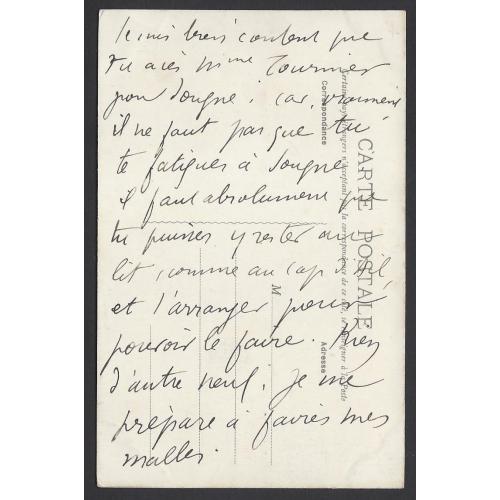 Je suis bien content que
tu aies Mme Tournier
pour Songne ; car, vraiment
il ne faut pas que tu
te fatigues à Songne
il faut absolument que
tu puisses y rester au
lit, comme au cap
et l'arranger pour
pouvoir le faire. Rien
d'autre neuf ; je me
prépare à faire mes
malles.
CARTE POSTALE
Certains pays étrangers n'acceptent pas la correspondance de ce côté, se renseigner à la Poste
Correspondance
Adresse
M